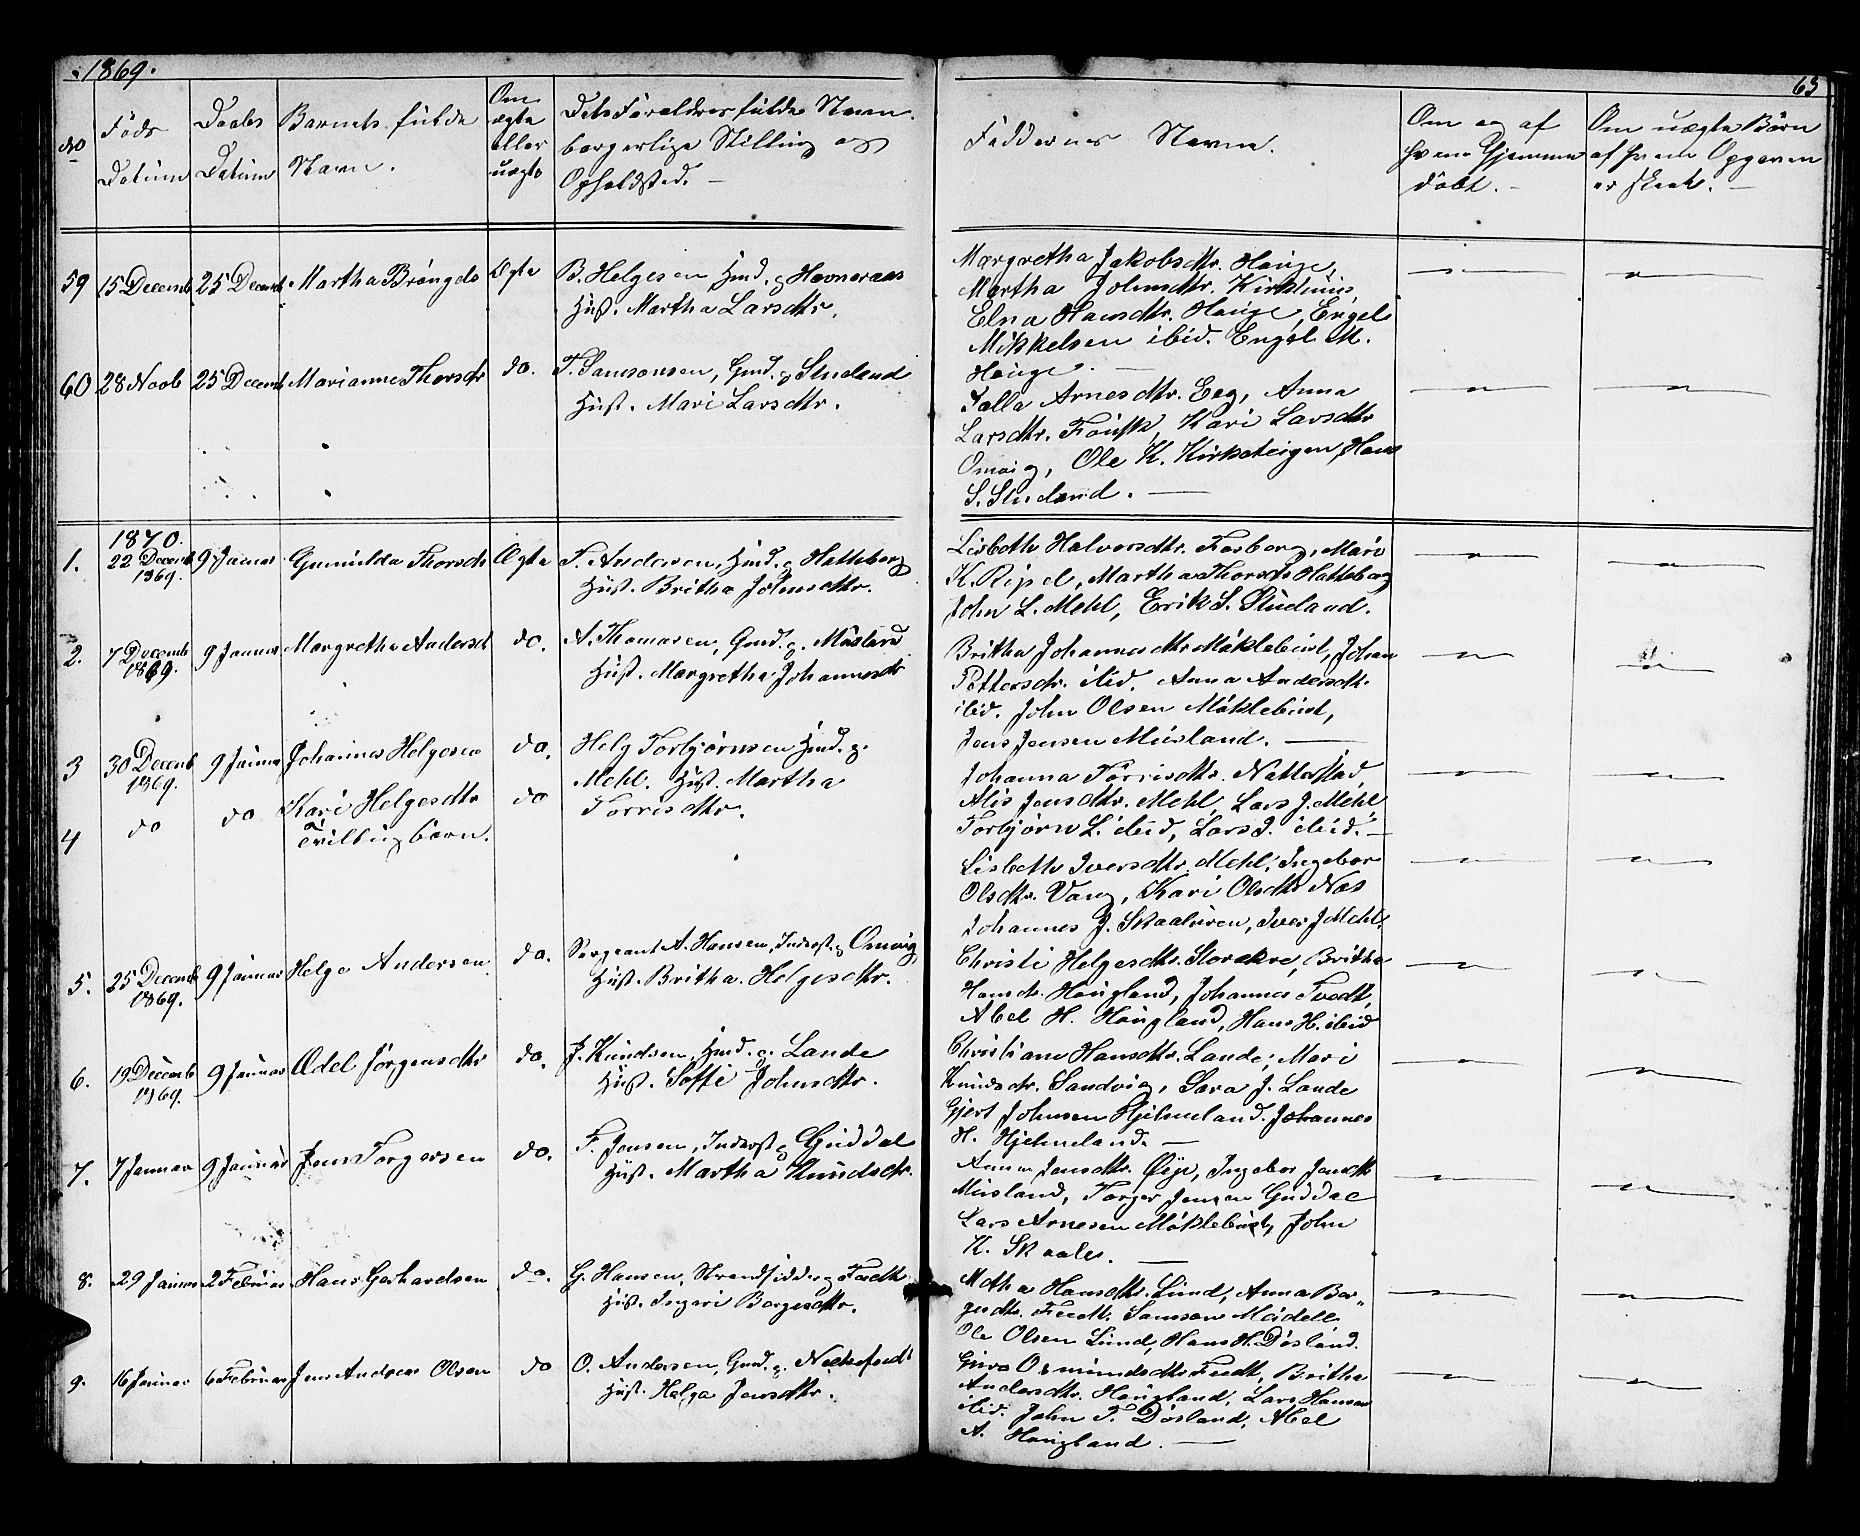 1869.
63
No
Føds
Datum
Daabs
Datum
Barnets fulde
Navn.
Om
ægte
eller
uægte
Dets Forældres fulde Navn
borgerlige Stilling og
Opholdsted. —
Faddernes Navne.
Om og af
hvem Hjemme
døbt. —
Om uægte Børn
af hvem Opgaven
er skeet. —
59 15 Decemb 25 Decemb Martha Brøngda Ægte B. Helgesen Hmd. g Havneraas
Hust. Martha Larsdtr.
Margretha Jakobsdtr. Hauge,
Martha Johnsdtr. Kirkhuus,
Elna Hansdtr. Hauge, Engel
Mikkelsen ibid. Engel M.
Hauge. —
60 28 Novb 25 Decemb Marianne Thorsdr do. T. Samsonsen, Gmd. g Studland
Hust. Mari Larsdtr.
Salla Arnesdtr. Eeg, Anna
Larsdtr. Fousk, Kari Larsdtr
Omvig, Ole K. Kirksteigen, Hans
S. Studland. —
1870.
1. 22 Decemb 9 Januar Gunnilda Thorsdr Ægte T. Andersen, Hmd. g Hatteberg
1869.
Hust. Britha Johnsdtr.
Lisbeth Halvorsdtr. Fosberg, Mari
K. Ripel, Martha Thorsdr Hatteberg
John L. Mehl, Erik S. Studland.
2. 7 Decemb 9 Januar Margretha Andersd do. A. Thomasen, Gmd. g. Musland
1869.
Hust. Margretha Johannesdr
Britha Johannesdtr Møklebust, Johan
Pettersdr. ibid. Anna Andersdtr.
ibid. John Olsen Møklebust,
Jens Jensen Musland. —
3 30 Decemb 9 Januar Johannes Helgesen do. Helg Torbjørnsen Hmd. g.
1869.
Mehl. Hust. Martha
Torrisdtr.
Johanna Torrisdtr. Natterstad,
Alis Jensdtr. Mehl, Lars J. Mehl,
Torbjørn L. ibid, Lars J. ibid. —
4 do do Kari Helgesdtr do
Tvilling børn.
Lisbeth Iversdtr. Mehl, Ingebor
Olsdtr. Vang, Kari Olsdtr Næs
Johannes J. Skaaluren, Iver J Mehl.
5. 25 Decemb 9 Januar Helge Andersen do. Sergeant A. Hansen, Inderst g Omvig
1869.
Hust. Britha Helgesdtr.
Christi Helgesdtr. Storakre, Britha
Hansdr. Hougland, Johannes Tvedt,
Abel H. Hougland, Hans H. ibid
6. 19 Decemb 9 Januar Ædel Jørgensdtr do. J. Knudsen, Hmd. g. Lande
1869.
Hust. Soffi Johnsdtr.
Christiane Hansdtr. Lande, Mari
Knudsdr. Sandvig, Sara J. Lande
Gjert Johnsen Hjelmeland. Johannes
H. Hjelmeland. —
7. 7 Januar 9 Januar Jens Torgersen do. T. Jensen, Inderst g Guddal
Hust. Martha Knudsdtr.
Anna Jensdtr. Øye, Ingebor Jensdtr
Musland, Torger Jensen Guddal
Lars Arnesen Møklebust, John
K. Skaales. —
8. 29 Januar 2 Februar Hans Gerhardsen do. G. Hansen, Strandsidder g Feedt
Hust. Ingeri Borgesdtr.
Metha Hansdtr. Lund, Anna Bor„
gesdtr. Feedt. Samson Mødell
Ole Olsen Lund, Hans H. Døsland.
9. 16 Januar 6 Februar Jens Andreas Olsen do O. Andersen, Gmd. g.
Hust. Helga Jensdtr.
Guro Osmundsdtr Feedt, Britha
Andersdtr. Hougland, Lars Hansen
ibid. John T. Døsland, Abel
A. Hougland. —